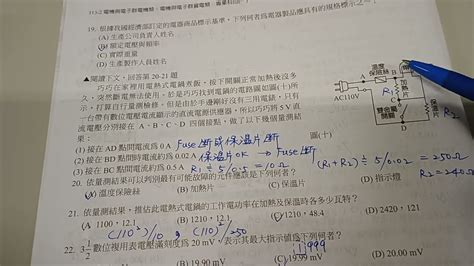 19. 根據我國經濟部訂定的電器商品標示基準，下列何者為電器製品應具有的規格標示之一？
(A) 生產公司負責人姓名
(B) 額定電壓與頻率
(C) 實際重量
(D) 生產製作人員姓名
◀閱讀下文，回答第 20-21 題
巧巧在家裡用電熱式電鍋煮飯，按下開關正常加熱後沒多
久，突然斷電無法使用。於是巧巧找到電鍋的電路圖如圖(十)所
示，打算自行量測檢修。但是由於手邊剛好沒有三用電表，只有
一台帶有數位電壓電流顯示的直流電源供應器，所以巧巧將 5V 直
流電壓分別接在 A、B、C、D 四個接點，做了以下幾個量測：
(1) 接在 AD 點間電流為 0A
Fuse斷或保溫片斷
(2) 接在 BD 點間時電流約為 0.02A
保溫片OK → Fuse斷
(3) 接在 BC 點間電流約為 0.5A
R1 = 5/0.5 = 10Ω
溫度
保險絲
加熱片
保溫片
AC110V
雙金屬
開關
A
B
D
R1
R2
圖(十)
(R1+R2) = 5/0.02 = 250Ω
R2 = 240Ω
20. 依量測結果可以判別最有可能故障的元件應該是下列何者？
(A) 溫度保險絲
(B) 加熱片
(C) 保溫片
(D) 指示燈
21. 依量測結果，推估此電熱式電鍋的工作電功率在加熱及保溫時各多少瓦特？
(A) 1100，12.1
(B) 1210，12.1
(C) 1210，48.4
(D) 2420，121
(110)²/10，(110)²/250
22. 3 1/2 數位複用表電壓滿刻度為 20 mV，表示其最大指示值為下列何者？
1999
(B) 19.90 mV
(C) 19.99 mV
(D) 20.00 mV